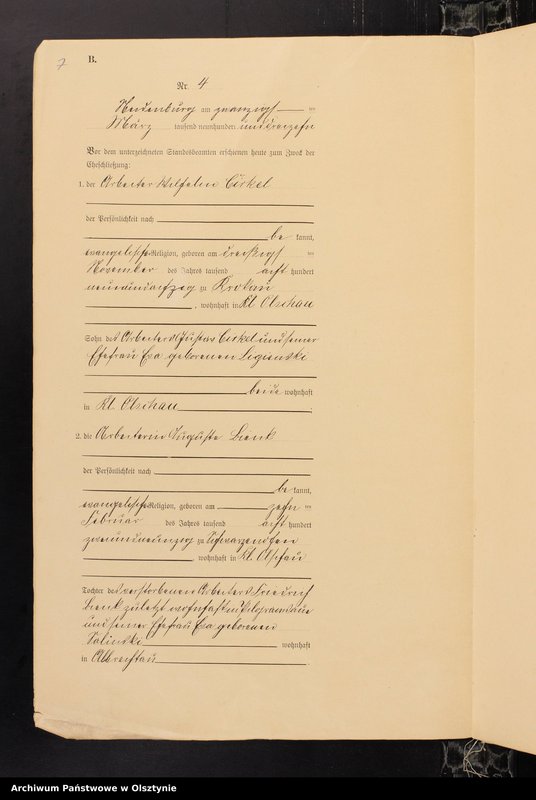 7
B.
Nr. 4
Neidenburg am zwanzigsten
März tausend neunhundert unddreizehn
Vor dem unterzeichneten Standesbeamten erschienen heute zum Zweck der
Eheschließung:
1. der Arbeiter Wilhelm Cirkel
der Persönlichkeit nach
be kannt,
evangelischer Religion, geboren am dreißigsten
November des Jahres tausend acht hundert
neunundachtzig zu
, wohnhaft in Kl. Olschau
Sohn des Arbeiters Gustav Cirkel und seiner
Ehefrau Eva geborenen
beide wohnhaft
in Kl. Olschau.
2. die Arbeiterin Auguste Lienk
der Persönlichkeit nach
be kannt,
evangelischer Religion, geboren am zehnten
Februar des Jahres tausend acht hundert
zweiundneunzig zu
, wohnhaft in Kl. Olschau
Tochter des verstorbenen Arbeiters Friedrich
Lienk zuletzt wohnhaft in
und seiner Ehefrau Eva geborenen
Salinski wohnhaft
in
Archiwum Państwowe w Olsztynie